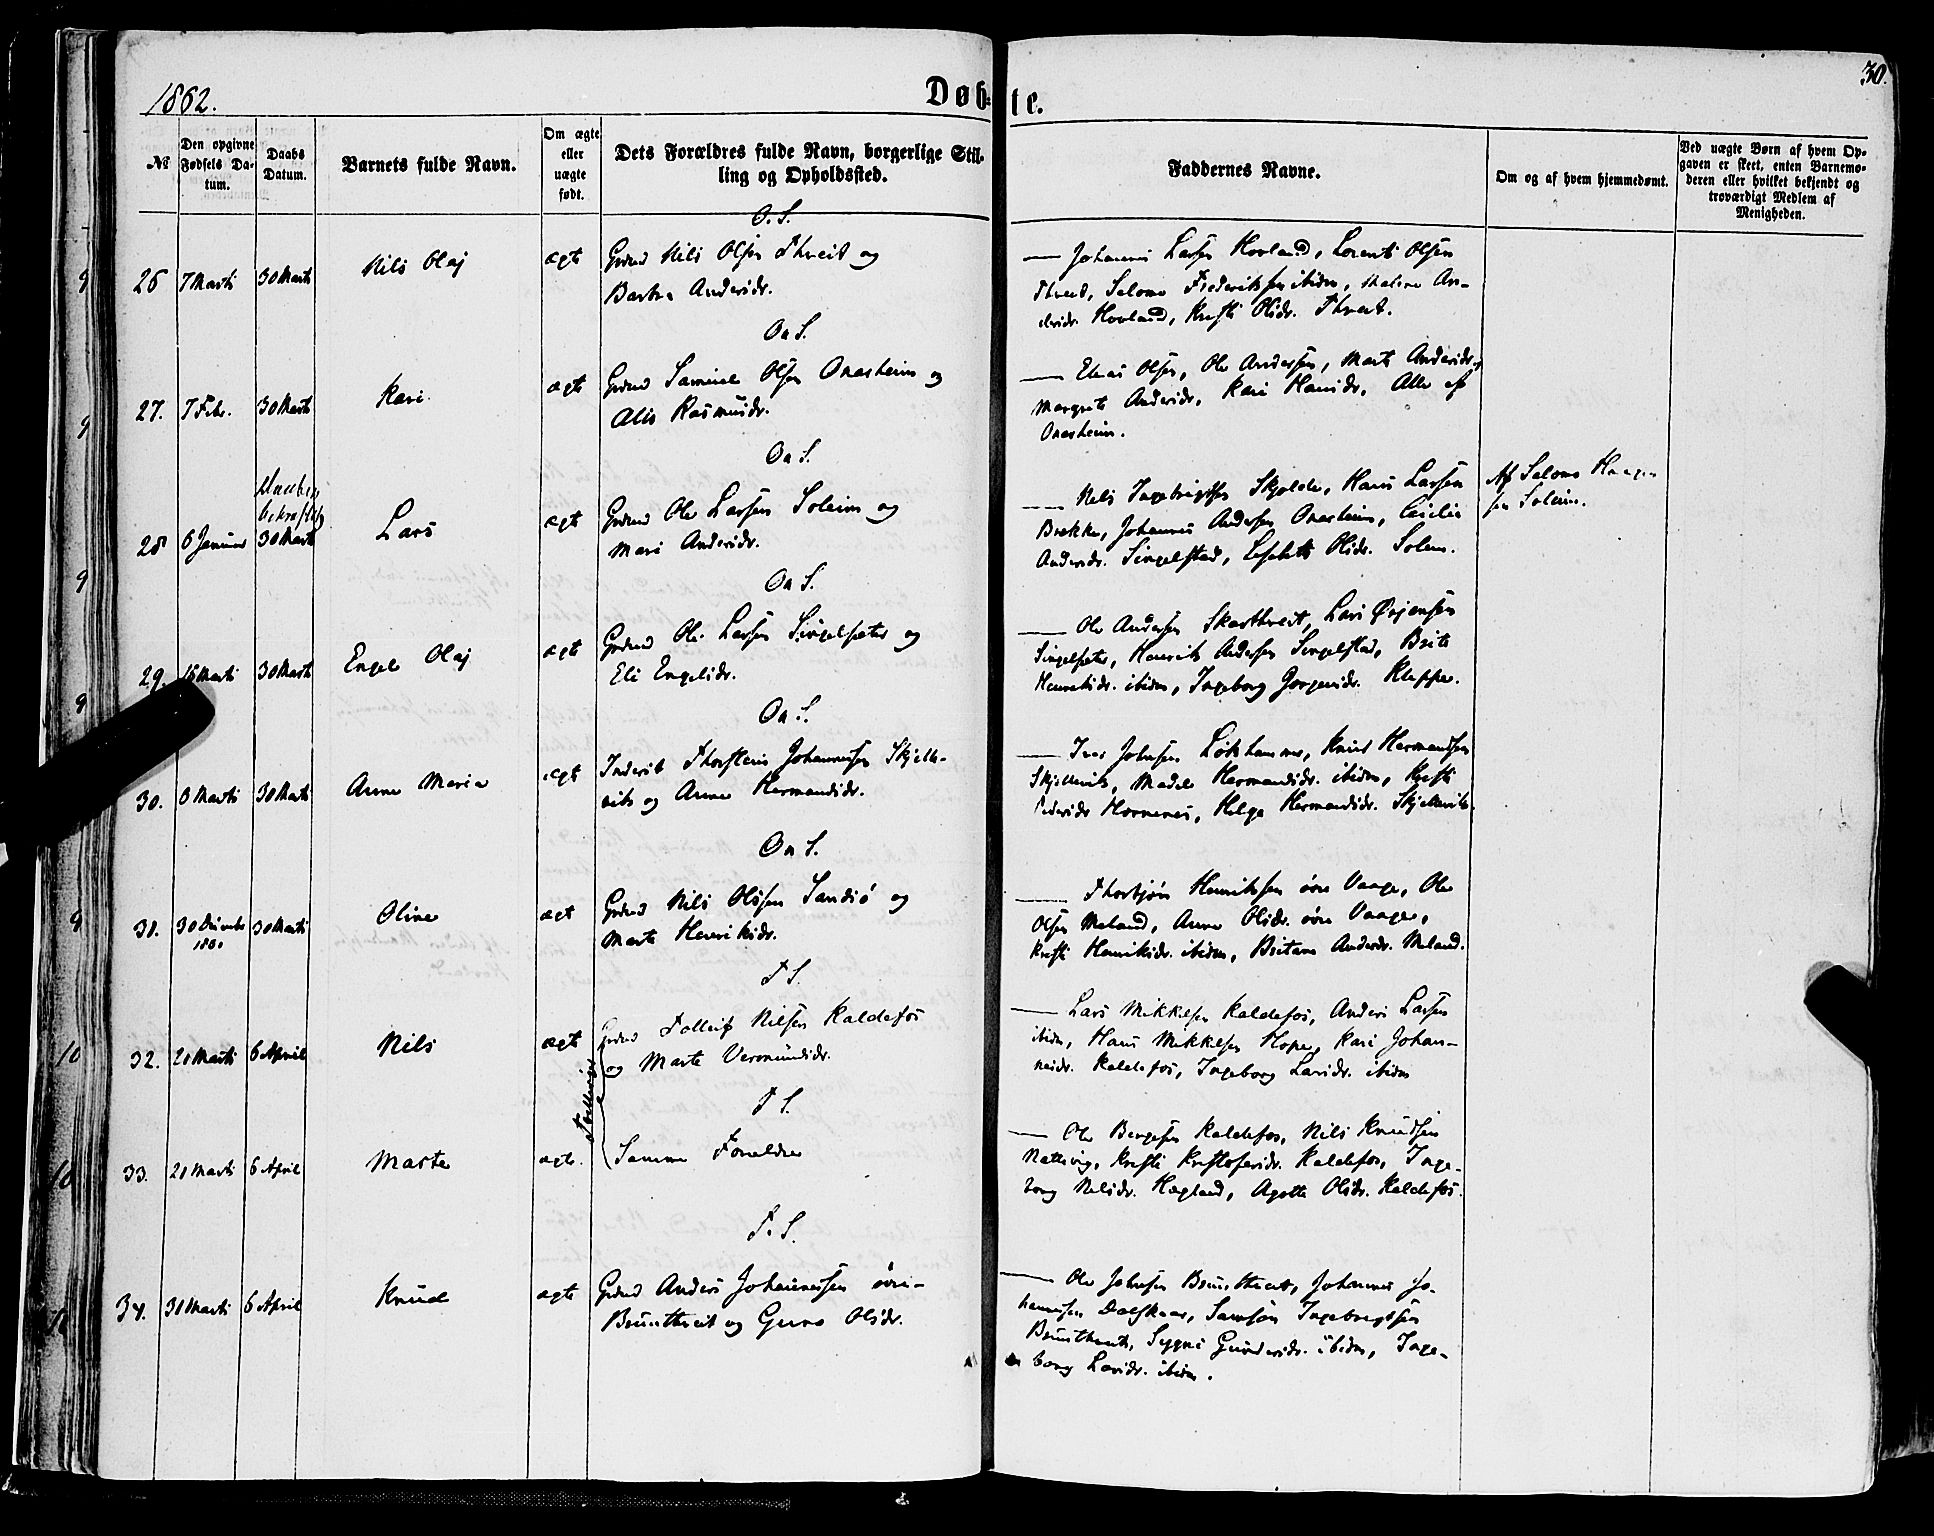 1862.
Døbte.
30.
№
Den opgivne Fødsels Datum.
Daabs Datum.
Barnets fulde Navn.
Om ægte eller uægte født.
Dets Forældres fulde Navn, borgerlige Stilling og Opholdssted.
Faddernes Navne.
Om og af hvem hjemmedøbt.
Ved uægte Børn af hvem Opgaven er skeet, enten Barnemoderen eller hvilket bekjendt og troværdigt Medlem af Menigheden.
O. S.
26 7 Marts 30 Marts Nils Olaj ægte
Grdmd Nils Olsen Thveit og
Barbra Andersdr.
Johannes Larsen Hovland, Lorents Olsen
Thveit, Salomo Frederiksen ibidm, Malene An-
dersdr. Hovland, Kristi Olsdr. Thveit.
On S.
27. 7 Febr. 30 Marts Kari ægte
Grdmd Samuel Olsen Onarheim og
Alis Rasmusdr.
Elias Olsen, Ole Andersen, Marte Andersdr.,
Margrete Andersdr., Kari Hansdr., Alle af
Onarheim.
On S.
28 6 Januar 30 Marts Lars ægte
Grdmd Ole Larsen Soleim og
Mari Andersdr.
Nils Ingebrigtsen Skjolde, Hans Larsen
Brekke, Johannes Andersen Onarheim, Cicilie
Andersdr. Singelstad, Olsdr. Solem.
Af Salomo Haagen-
sen Soleim.
On S.
29. 16 Marts 30 Marts Engel Olaj ægte
Grdmd Ole Larsen Singelsæter og
Eli Engelsdr.
Ole Andersen Skarthveit, Lars Ørjansen
Singelsæter, Henrik Andersen Singelstad, Brite
Henriksdr. ibidm, Ingeborg Gorgensdr. Kleppe.
On S.
30. 8 Marts 30 Marts Anne Maria ægte
Inderst Thorstein Johannessen Skjelle-
vik og Anne Hermandsdr.
Iver Johnsen Løkhammer, Knud Hermandsen
Skjellevik, Madele Hermandsdr. ibidm, Kristi
Pedersdr Hornenes, Helga Hermandsdr. Skjellevik.
On S.
31. 30 Decembr 1861 30 Marts Oline ægt
Grdmd Nils Olssen Sandsø og
Marte Henriksdr.
Thorbjørn Henriksen øvre Vaage, Ole
Olsen Meland, Anne Olsdr. øvre Vaage,
Kristi Henriksdr. ibidm, Britane Andersdr. Meland.
T S.
32. 21 Marts 6 April Nils ægte
Grdmd Tolleif Nilsen Kaldefos
og Marte Vermundsdr.
Tvillinger
Lars Mikkelsen Kaldefos, Anders Larsen
ibidm, Hans Mikkelsen Hope, Kari Johan-
nesdr. Kaldefos, Ingeborg Larsdr. ibidm
T S.
33. 21 Marts 6 April Marte ægte.
Samme Forældre
Ole Bergesen Kaldefos, Nils Knudsen
Nattvig, Kristi Kristofersdr. Kaldefos, Inge-
borg Nilsdr. Hægland, Agotte Olsdr. Kaldefos.
T. S.
34. 31 Marts 6 April Knud ægte
Grdmd Anders Johannessen øvre-
Bruntthveit og Guro Olsdr.
Ole Johnsen Bruntthveit, Johannes Jo-
hannessen Dalskaar, Samson Ingebrigtsen
Bruntthveit, Sygni Gundersdr. ibidm, Inge-
borg Larsdr. ibidm.